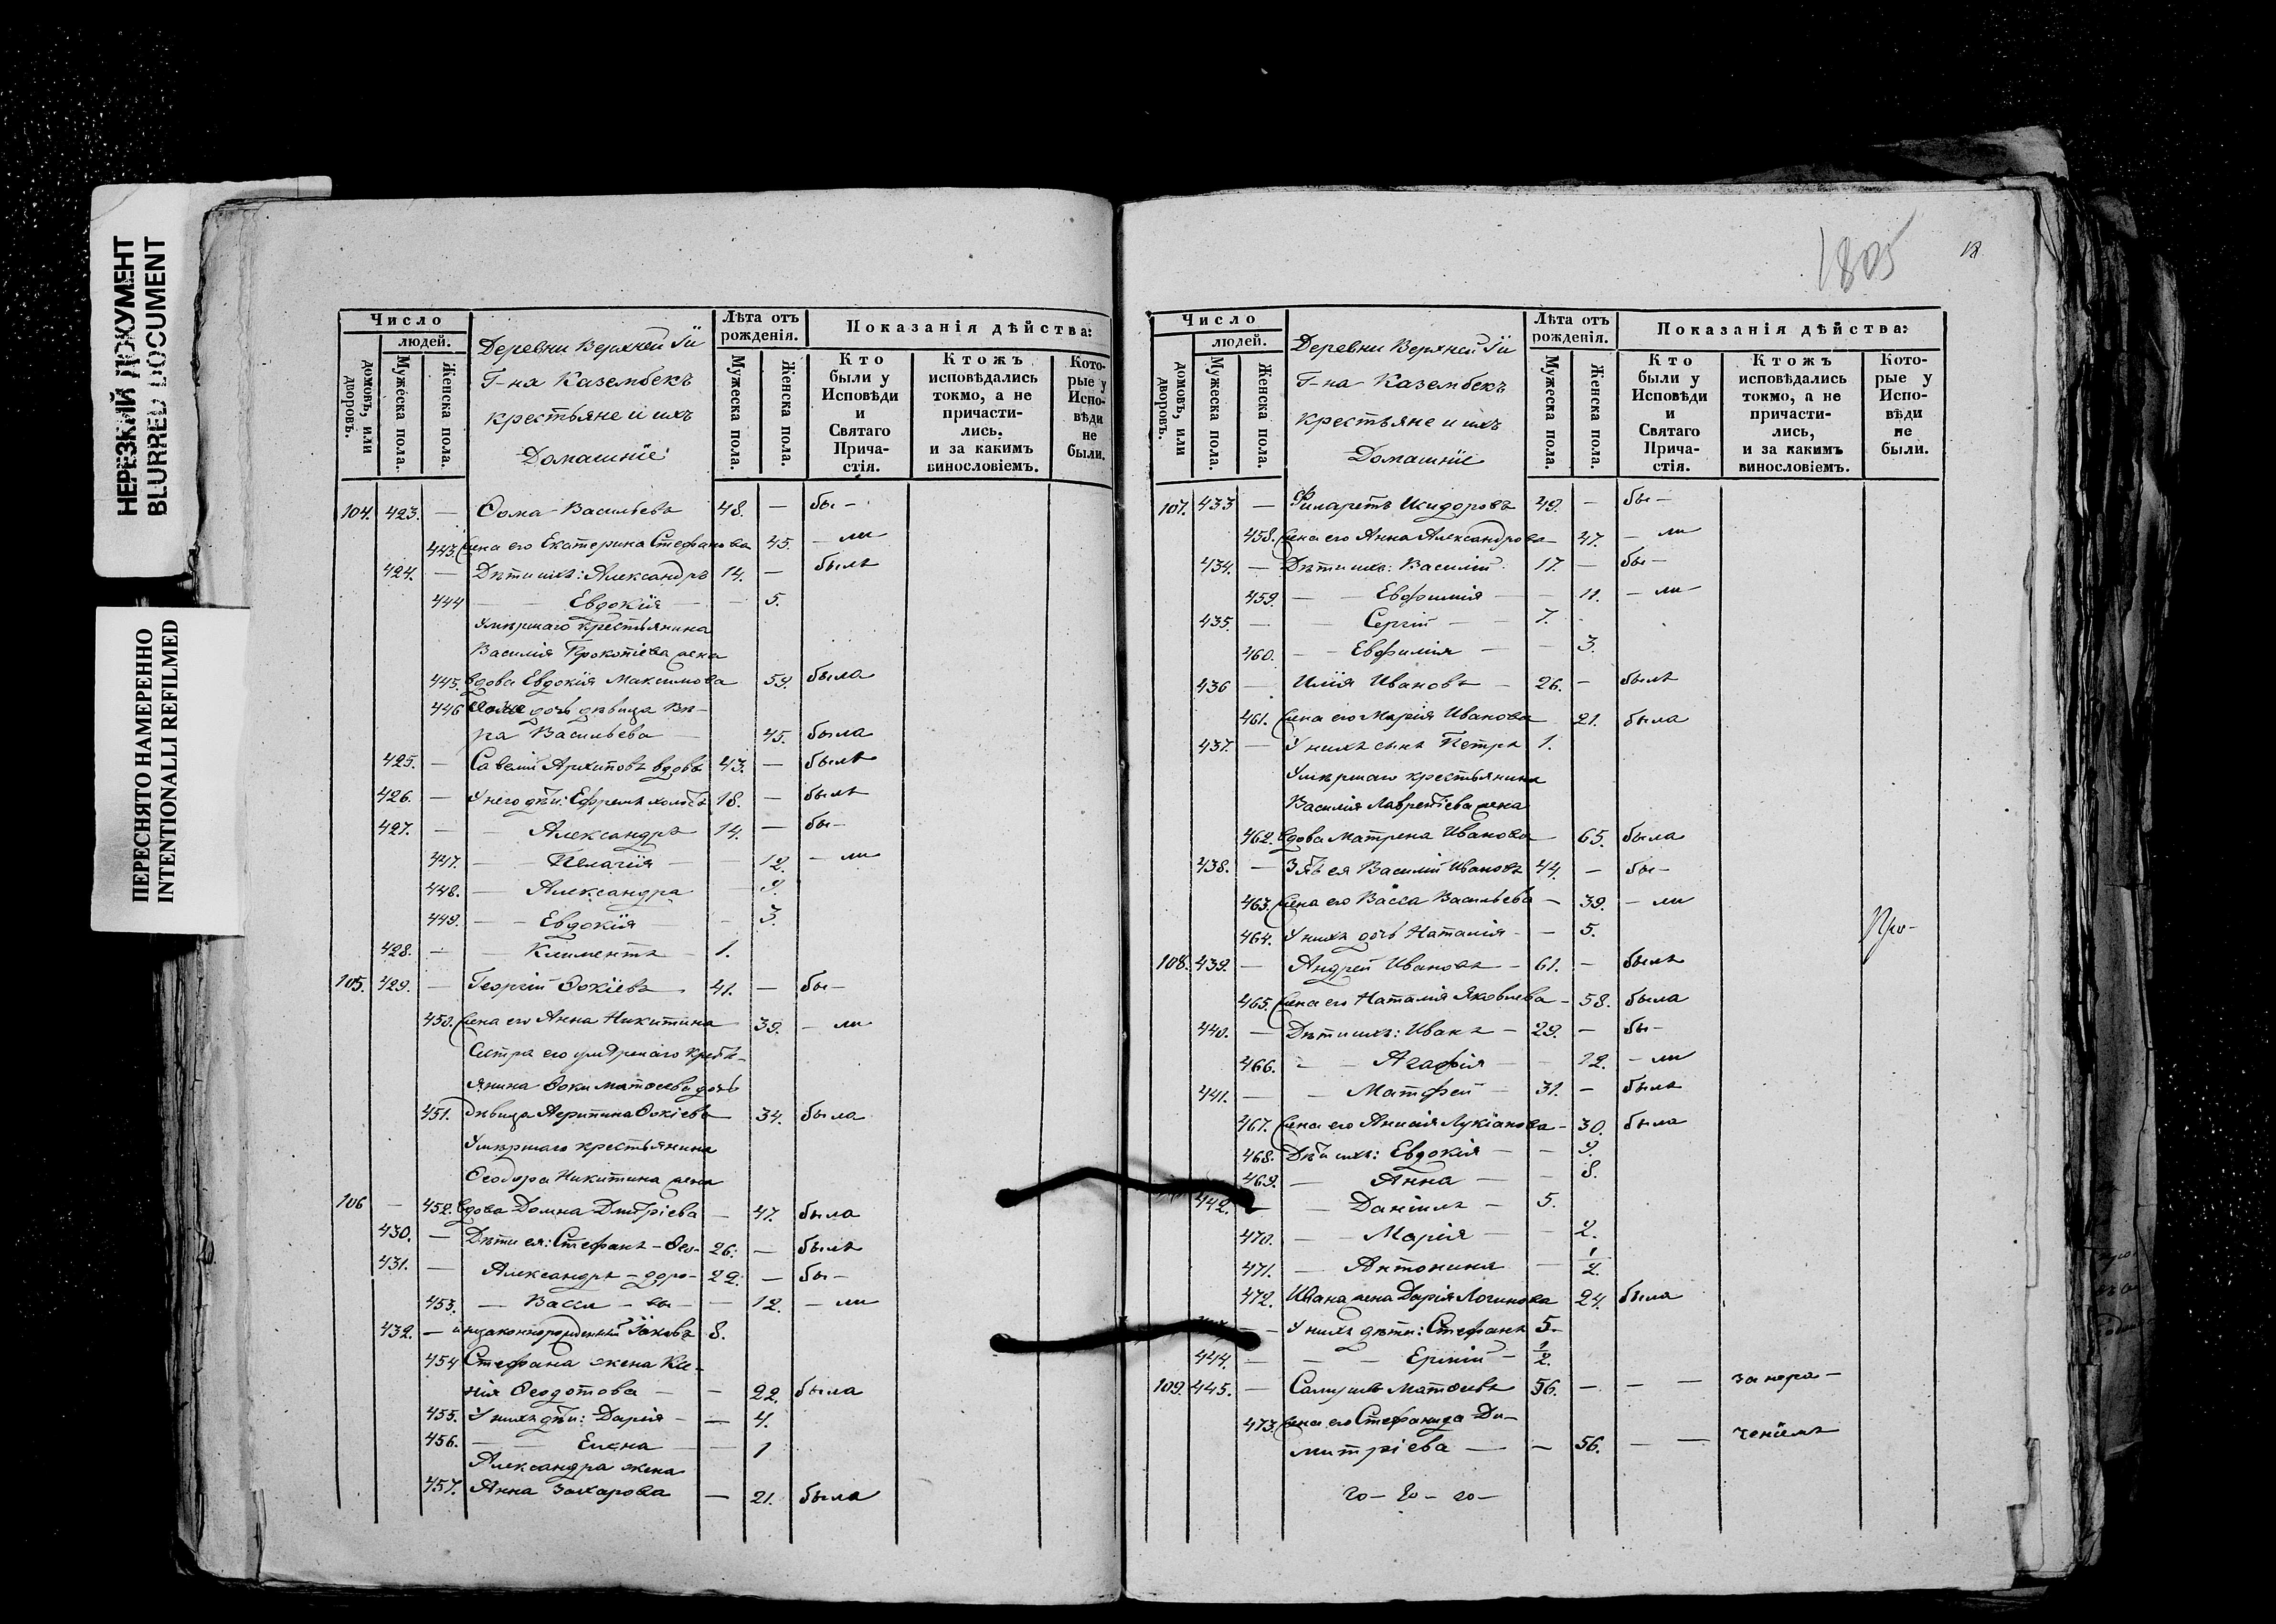 НЕРЕЗКИЙ ДОКУМЕНТ
BLURRED DOCUMENT
ПЕРЕСНЯТО НАМЕРЕННО
INTENTIONALLI REFILMED
Число
людей.
домовъ, или дворовъ.
Мужеска пола.
Женска пола.
Деревни Верхней Iи
Г-на Каземъбекъ
крестьяне и ихъ
Домашніе
Лѣта отъ рожденія.
Мужеска пола.
Женска пола.
Показанія дѣйства:
Кто были у Исповѣди и Святаго Причастія.
Ктожъ исповѣдались токмо, а не причастились, и за какимъ винословіемъ.
Которые у Исповѣди не были.
104. 423. — Ѳома Васильевъ 48. — бы—
443. Жена его Екатерина Стефанова 45. — ли
424. — Дѣти ихъ: Александръ 14. — былъ
444 — — Евдокія — — 5.
Умершаго крестьянина
Василія Прокопіева жена
445. вдова Евдокія Максимова 59. была
446 дочь дѣвица Вѣ—
ра Васильева — 45. была
425. — Савелій Архиповъ вдовъ 43. — былъ
426. — У него дѣти: Ефремъ холостъ 18. — былъ
427. — — Александръ 14. — бы—
447. — — Пелагія — — 12. — ли
448. — Александра — 9.
449. — — Евдокія — — 3.
428. — — Климентъ — 1.
105. 429. — Георгій Ѳокіевъ 41. — бы—
450. Жена его Анна Никитина 39. — ли
Сестра его умершаго кресть—
янина Ѳоки Матѳеева дочь
451. дѣвица Агрипина Ѳокіева 34. была
Умершаго крестьянина
Ѳеодора Никитина жена
106 — 452. вдова Домна Дмитріева — 47. была
430. — Дѣти ея: Стефанъ — Ѳео— 26. — былъ
431. — Александръ — доро— 22. — бы—
453. — Васса — вы — — 12. — ли
432. — и незаконнорожденный Іаковъ 8.
454 Стефана жена Ксе—
нія Ѳеодотова — — 22. была
455. У нихъ дѣти: Дарія — — 4.
456. — — Елена — — 1
Александра жена
457. Анна Захарова — 21. была
1805
18
Число
людей.
домовъ, или дворовъ.
Мужеска пола.
Женска пола.
Деревни Верхней Iи
Г-на Каземъбекъ
крестьяне и ихъ
Домашніе
Лѣта отъ рожденія.
Мужеска пола.
Женска пола.
Показанія дѣйства:
Кто были у Исповѣди и Святаго Причастія.
Ктожъ исповѣдались токмо, а не причастились, и за какимъ винословіемъ.
Которые у Исповѣди не были.
107. 433 — Филаретъ Исидоровъ 49. — бы—
458. Жена его Анна Александрова — 47. — ли
434. — Дѣти ихъ: Василій 17. — бы—
459. — — Евфимія — — 11. — ли
435. — — Сергій — — 7.
460. — — Евфимія — — 3.
436 — Илія Ивановъ — 26. — былъ
461. Жена его Марія Иванова 21. была
437. — У нихъ сынъ Петръ 1.
Умершаго крестьянина
Василія Лаврентіева жена
462. вдова Матрена Иванова 65. была
438. — Зять ея Василій Ивановъ 44. — бы—
463. Жена его Васса Васильева — 39. — ли
464. У нихъ дочь Наталія — — 5.
Про—
108. 439. — Андрей Ивановъ — 61. — былъ
465. Жена его Наталія Яковлева — 58. была
440. — Дѣти ихъ: Иванъ — 29. — бы—
466. — — Агафія — — 12. — ли
441. — — Матфей — 31. — былъ
467. Жена его Анисія Лукіанова — 30. была
468. Дѣти ихъ: Евдокія — — 9.
469. — Анна — — 8.
442. — — Даніилъ — 5.
470. — — Марія — — 2.
471. — Антонина — 1/2.
472. Ивана жена Дарія Логинова 24. была
— У нихъ дѣти: Стефанъ 5.
444. — — — Ермій — 1/2.
109. 445. — Самуилъ Матѳеевъ 56. — — — за нера—
473. Жена его Стефанида Ди—
митріева — — 56. — — ченіемъ
го — го — го —